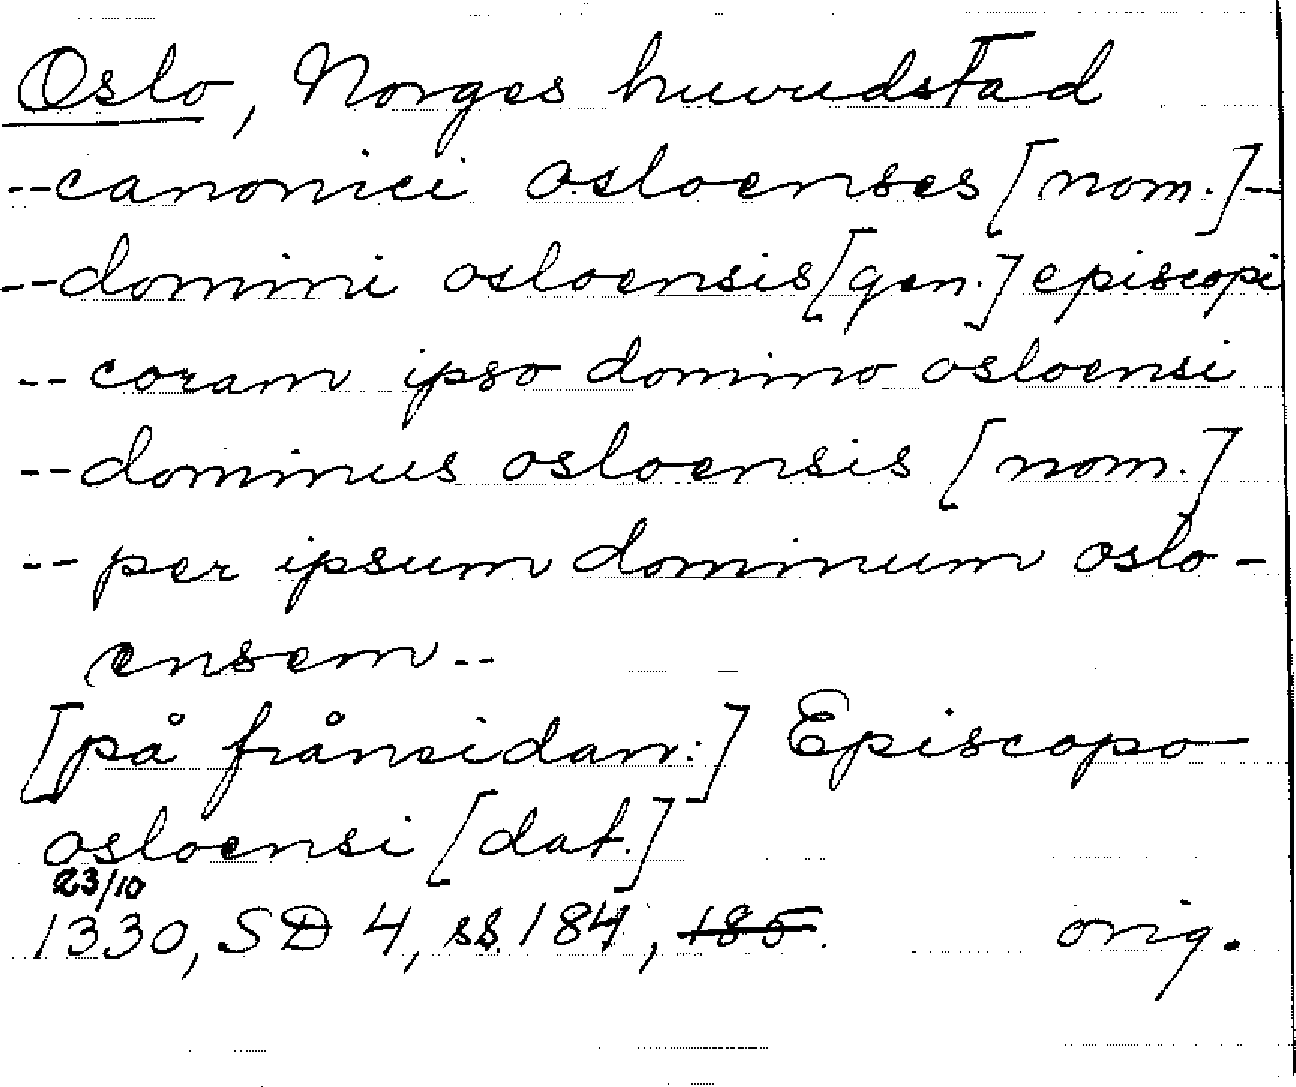 Oslo, Norges huvudstad
--canonici osloenses [nom.]--
--domini osloensis [gen.] episcopi
-- coram ipso domino osloensi
--dominus osloensis [nom.]
-- per ipsum dominum oslo-
ensem--
[på frånsidan:] Episcopo
osloensi [dat.]
23/10
1330, SD 4, ss. 184, 185. orig.